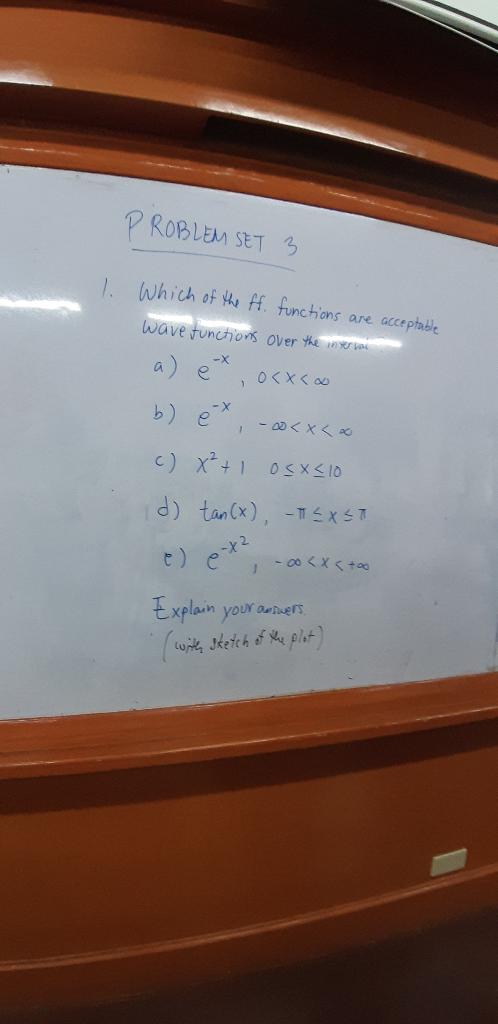 PROBLEM SET 3
1. Which of the ff. functions are acceptable
wavefunctions over the interval
a) e^-x, 0<x<∞
b) e^-x, -∞<x<∞
c) x²+1 0≤x≤10
d) tan(x), -π≤x≤π
e) e^-x², -∞<x<+∞
Explain your answers.
(with sketch of the plot)